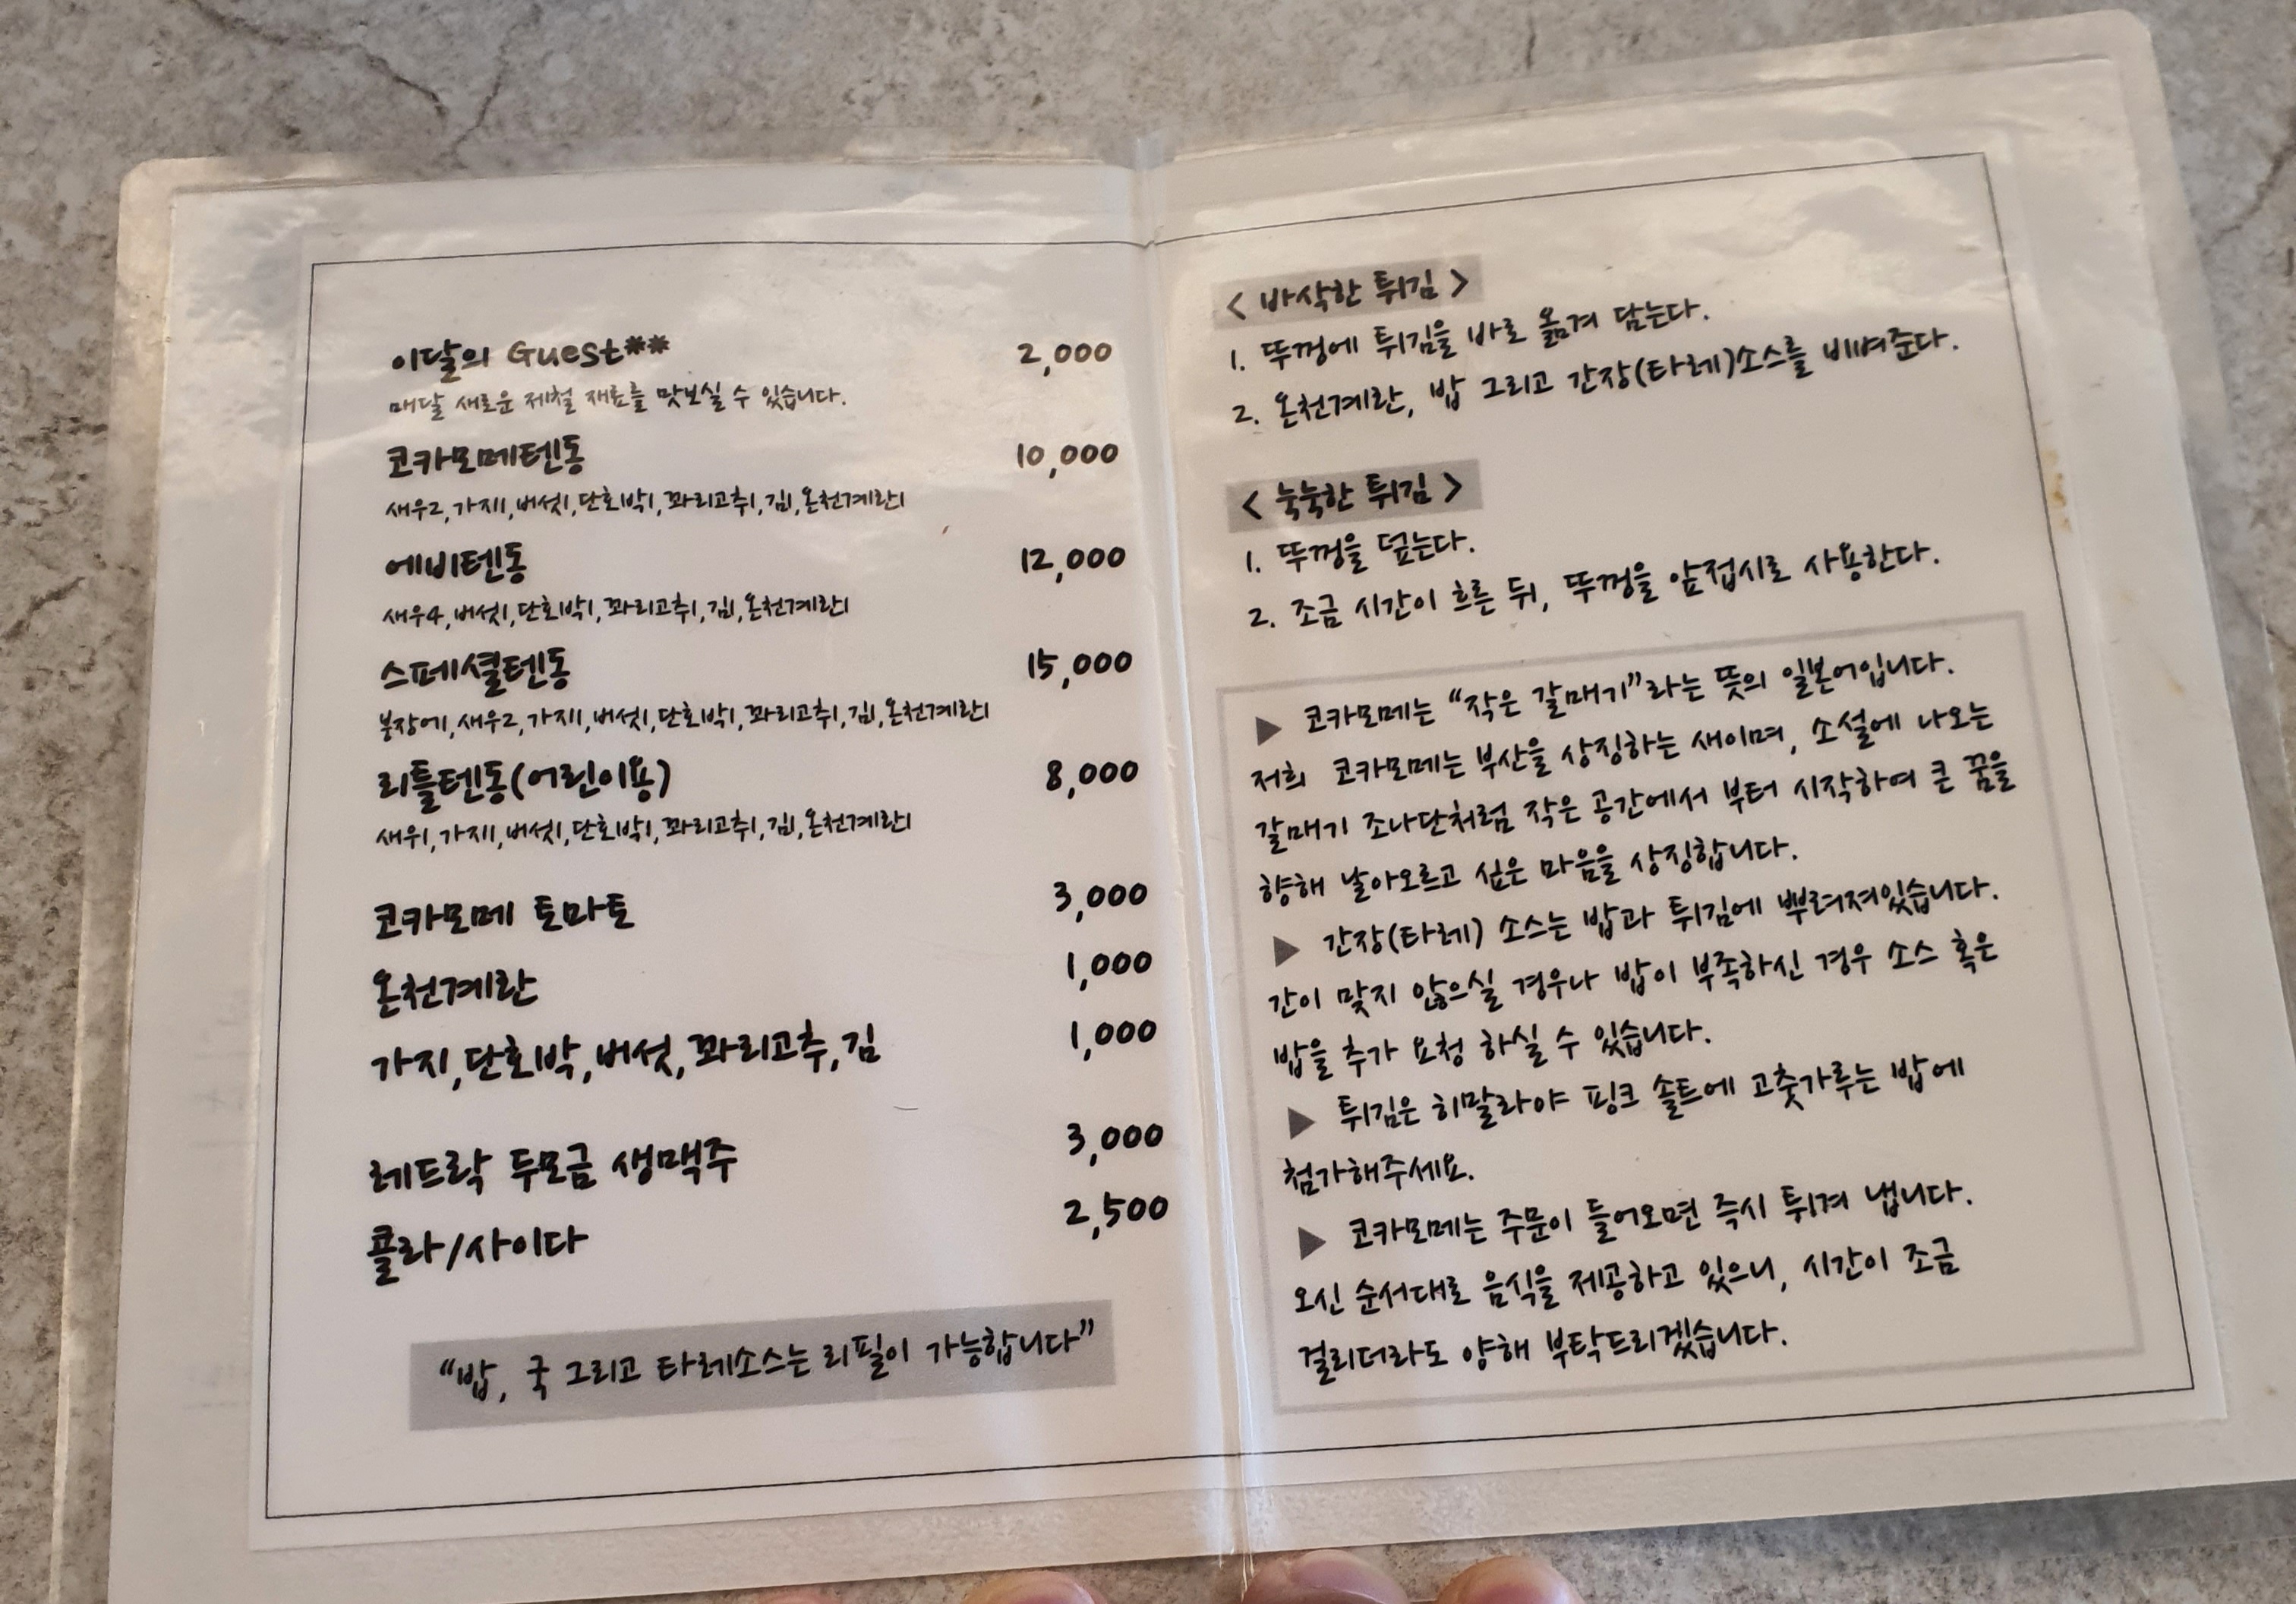 이달의 Guest** 2,000
매달 새로운 제철 재료를 맛보실 수 있습니다.
코카모메텐동 10,000
새우2,가지1,버섯1,단호박1,꽈리고추1,김1,온천계란1
에비텐동 12,000
새우4,버섯1,단호박1,꽈리고추1,김1,온천계란1
스페셜텐동 15,000
붕장어1,새우2,가지1,버섯1,단호박1,꽈리고추1,김1,온천계란1
리틀텐동(어린이용) 8,000
새우1,가지1,버섯1,단호박1,꽈리고추1,김1,온천계란1
코카모메 토마토 3,000
온천계란 1,000
가지,단호박,버섯,꽈리고추,김 1,000
레드락 두모금 생맥주 3,000
콜라/사이다 2,500
"밥, 국 그리고 타레소스는 리필이 가능합니다"
< 바삭한 튀김 >
1. 뚜껑에 튀김을 바로 옮겨 담는다.
2. 온천계란, 밥 그리고 간장(타레)소스를 비벼준다.
< 눅눅한 튀김 >
1. 뚜껑을 덮는다.
2. 조금 시간이 흐른 뒤, 뚜껑을 앞접시로 사용한다.
▶ 코카모메는 "작은 갈매기"라는 뜻의 일본어입니다.
저희 코카모메는 부산을 상징하는 새이며, 소설에 나오는
갈매기 조나단처럼 작은 공간에서 부터 시작하여 큰 꿈을
향해 날아오르고 싶은 마음을 상징합니다.
▶ 간장(타레) 소스는 밥과 튀김에 뿌려져있습니다.
간이 맞지 않으실 경우나 밥이 부족하신 경우 소스 혹은
밥을 추가 요청 하실 수 있습니다.
▶ 튀김은 히말라야 핑크 솔트에 고춧가루는 밥에
첨가해주세요.
▶ 코카모메는 주문이 들어오면 즉시 튀겨 냅니다.
오신 순서대로 음식을 제공하고 있으니, 시간이 조금
걸리더라도 양해 부탁드리겠습니다.